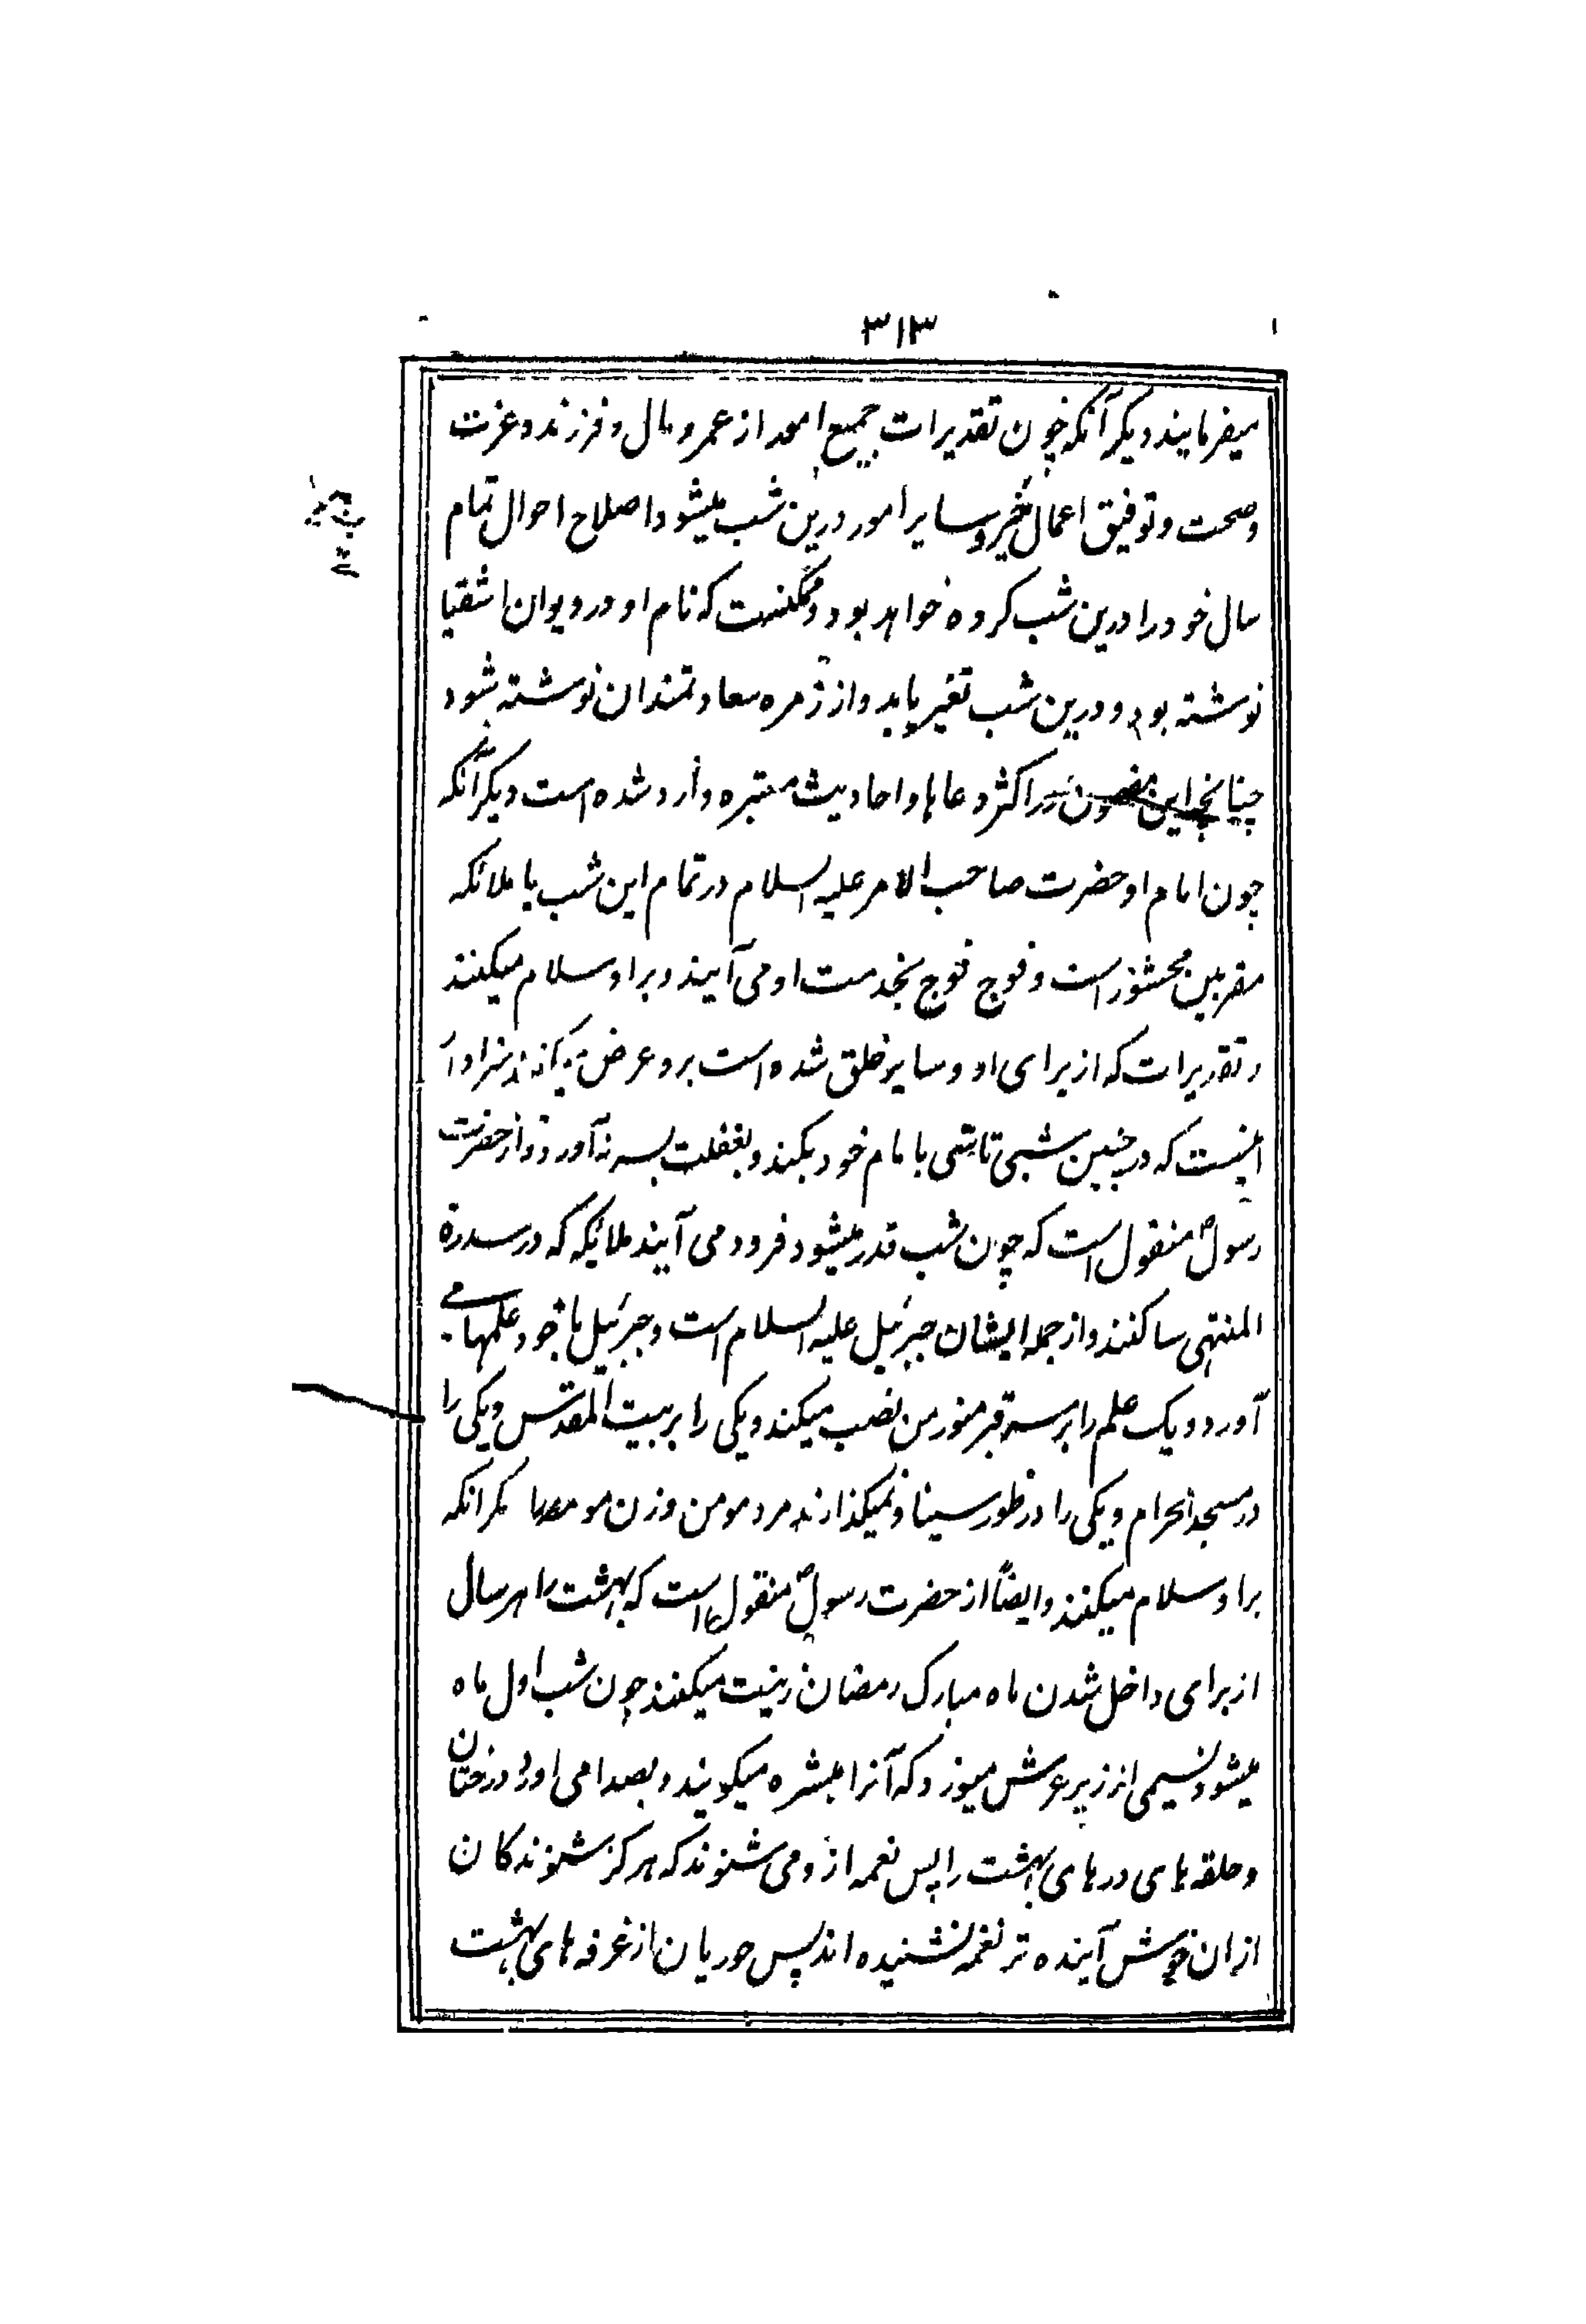 ٣١٣
میفرمایند دیکر آنکه چون تقدیرات جمیع امور از عمر و مال و فرزند و عزت
و صحت و توفیق اعمال خیر و سایر امور درین شب میشود اصلاح احوال تمام
سال خود را درین شب کرده خواهد بود و ممکنست که نام او در دیوان اشقیا
نوشته بود و درین شب تغیر یابد و از زمره سعادتمندان نوشته شود
چنانچه این مضمون در اکثر دعاها و احادیث معتبره وارد شده است دیکر آنکه
چون امام او حضرت صاحب الامر علیه السلام در تمام این شب با ملائکه
مقربین محشور است و فوج فوج بخدمت او می آیند و بر او سلام میکنند
و تقدیرات که از برای او و سایر خلق شده است برو عرض میکنند سزاوار
اینست که در چنین شبی تاسی با امام خود بکند و بغفلت بسر نیاورد و از حضرت
رسول ص منقول است که چون شب قدر میشود فرود می آیند ملائکه که در سدرة
المنتهی ساکنند و از جمله ایشان جبرئیل علیه السلام است و جبرئیل با خود علمها می
آورد و یک علم را بر سر قبر منور من نصب میکند و یکی را بر بیت المقدس و یکی را
در مسجد الحرام و یکی را در طور سینا و نمیکذارند مرد مومن و زن مومنه مکر انکه
بر او سلام میکنند و ایضاً از حضرت رسول ص منقول است که بهشت را هر سال
از برای داخل شدن ماه مبارک رمضان زینت میکنند چون شب اول ماه
میشود نسیمی از زیر عرش میوزد که آنرا مبشره میکویند و بصدا می اورد درختان
و حلقه های درهای بهشت را پس نغمه از و می شنوند که هرکز شنوندکان
از ان خوش آینده تر نغمه نشنیده اند پس حوریان از غرفه های بهشت